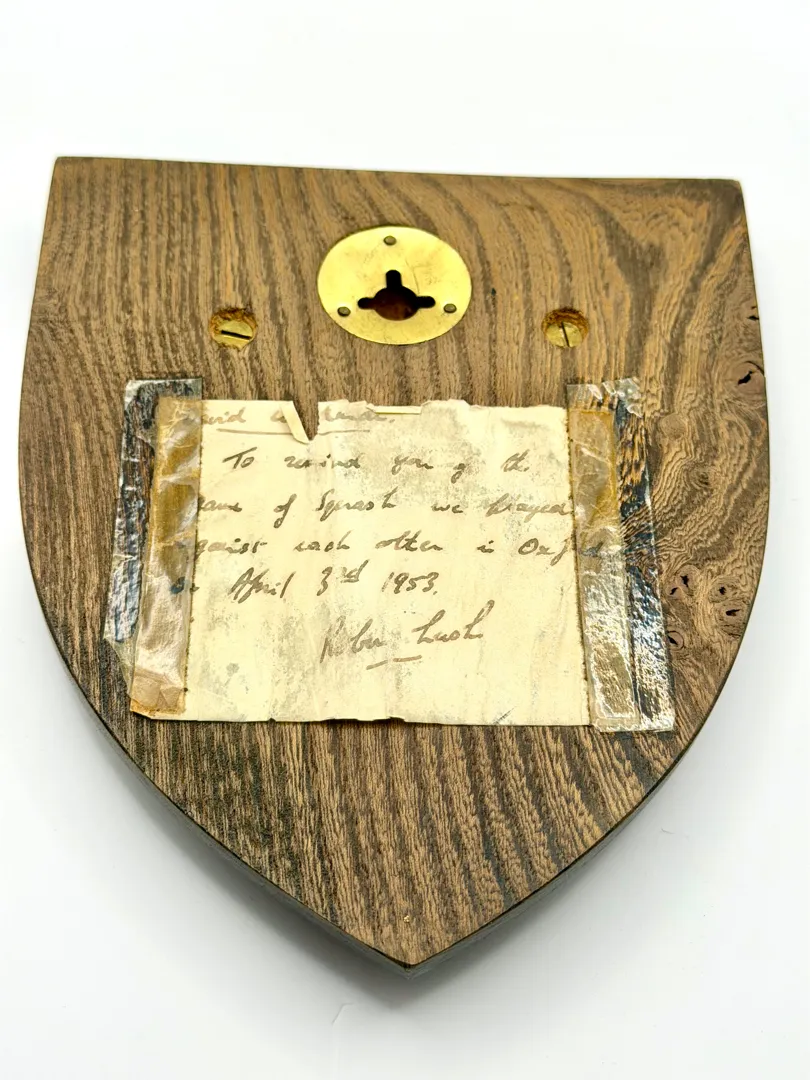 To remind you of the
game of Squash we played
against each other in Oxford
on April 3rd 1953.